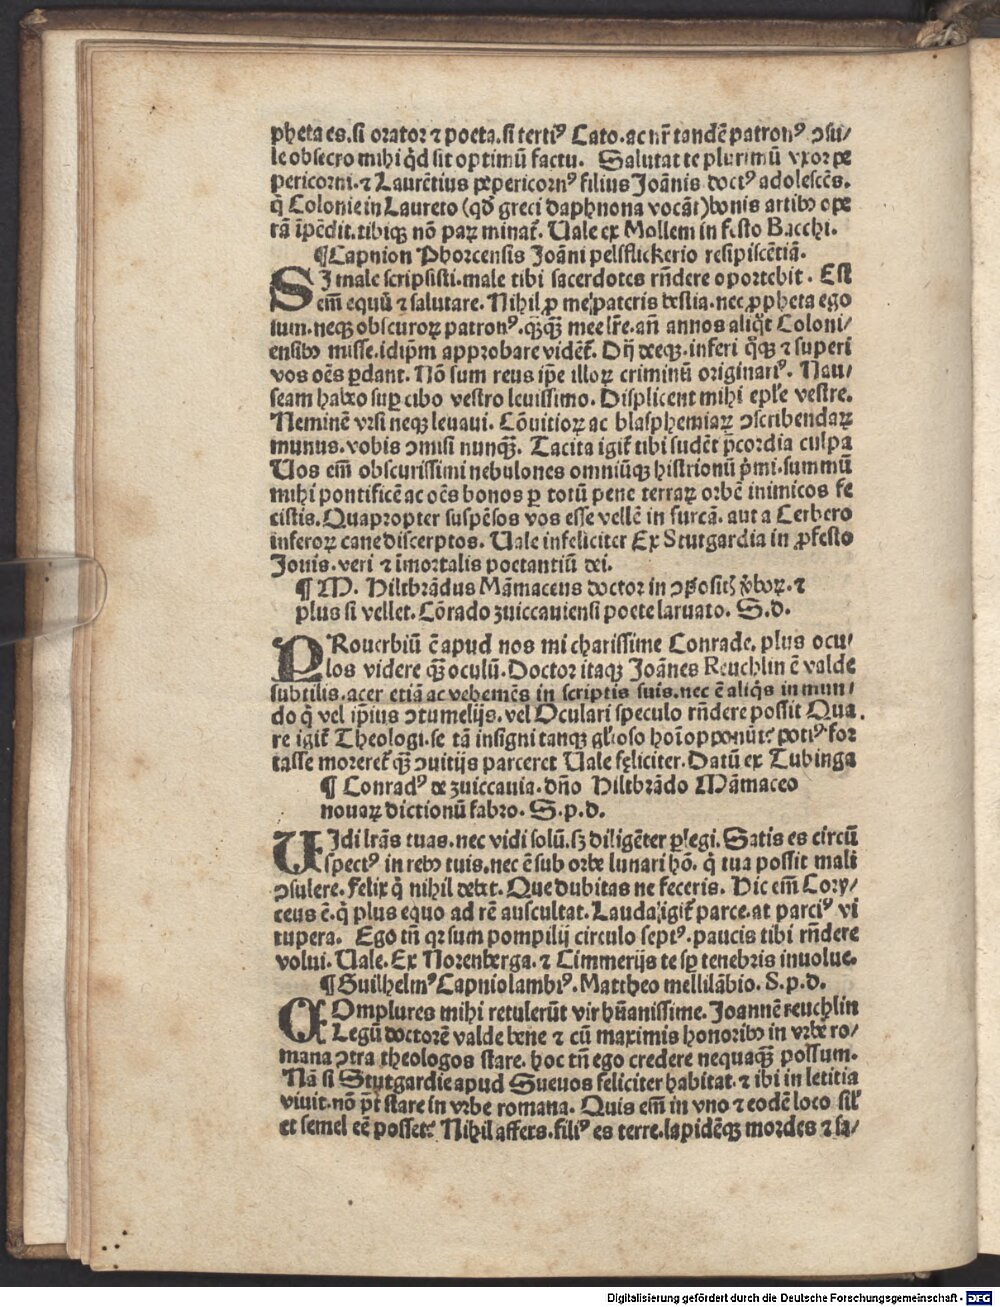 pheta es. si orator ⁊ poeta. si tertiꝰ Cato. ac nr̄ tandē patronꝰ ↄsu/
le obsecro mihi q̇d sit optimū factu. Salutat te plurimū vxor pe
pericorni. ⁊ Laurētius pepericornꝰ filius Joānis doctꝰ adolescēs.
q̇ Colonie in Laureto (qđ greci daphnona vocāt) bonis artibꝰ ope
rā īpēdit. tibiqꝫ nō paꝝ minat̄. Vale ex Mollem in festo Bacchi.
¶ Capnion Phorcensis Joāni pelsflickerio resipiscētiā.
SJ male scripsisti. male tibi sacerdotes rn̄dere oportebit. Est
em̄ equū ⁊ salutare. Nihil ꝓ me pateris bestia. nec ꝓpheta ego
sum. neqꝫ obscuroꝝ patronꝰ. qꝫqꝫ mee lr̄e. an̄ annos aliq̇t Coloni/
ensibꝰ misse. id ip̄m approbare vidēt̄. Dij deeqꝫ. inferi q̊qꝫ ⁊ superi
vos oēs ꝑdant. Nō sum reus ip̄e illoꝝ criminū originariꝰ. Nau/
seam habeo suꝑ cibo vestro leuissimo. Displicent mihi epl̄e vestre.
Neminē vrsi neqꝫ leuaui. Cōuitioꝝ ac blasphemiaꝝ ↄscribendaꝝ
munus. vobis ↄmisi nunqꝫ. Tacita igit̄ tibi sudēt p̄cordia culpa
Vos em̄ obscurissimi nebulones omniūqꝫ histrionū ṗmi. summū
mihi pontificē ac oēs bonos ꝑ totū pene terraꝝ orbē inimicos fe
cistis. Quapropter suspēsos vos esse vellē in furcā. aut a Cerbero
inferoꝝ cane discerptos. Vale infeliciter Ex Stutgardia in ꝓfesto
Jouis. veri ⁊ īmortalis poetantiū dei.
¶ M. Hiltbrādus Māmaceus doctor in
plus si vellet. Cōrado zuiccauiensi poete laruato. S. d.
PRouerbiū ē apud nos mi charissime Conrade. plus ocu/
los videre qꝫ oculū. Doctor itaqꝫ Joānes Reuchlin ē valde
subtilis. acer etiā ac vehemēs in scriptis suis. nec ē aliq̇s in mun/
do q̇ vel ip̄ius ↄtumelijs. vel Oculari speculo rn̄dere possit Qua.
re igit̄ Theologi. se tā insigni tanqꝫ gl̄ioso hoī opponūt? potiꝰ for
tasse moreret̄ qꝫ ↄuitijs parceret Vale feliciter. Datū ex Tubinga
¶ Conradꝰ de zuiccauia. dn̄o Hiltbrādo Māmaceo
nouaꝝ dictionū fabro. S. p. d.
VJdi lr̄as tuas. nec vidi solū. sꝫ diligēter ꝑlegi. Satis es circū
spectꝰ in rebꝰ tuis. nec ē sub orbe lunari hō. q̇ tua possit mali
ↄsulere. Felix q̇ nihil debet. Que dubitas ne feceris. Hic em̄ Cory/
ceus ē. q̇ plus equo ad rē auscultat. Lauda igit̄ parce. at parciꝰ vi
tupera. Ego tn̄ qꝛ sum pompilij circulo septꝰ. paucis tibi rn̄dere
volui. Vale. Ex Norenberga. ⁊ Cimmerijs te sꝑ tenebris inuolue.
¶ Guilhelmꝰ Capniolambiꝰ. Mattheo mellilābio. S. p. d.
COmplures mihi retulerūt vir hūanissime. Joannē reuchlin
Legū doctorē valde bene ⁊ cū maximis honoribꝰ in vrbe ro/
mana ↄtra theologos stare. hoc tn̄ ego credere nequaqꝫ possum.
Nā si Stutgardie apud Sueuos feliciter habitat. ⁊ ibi in letitia
viuit. nō pt̄ stare in vrbe romana. Quis em̄ in vno ⁊ eodē loco sil̄
et semel eē posset? Nihil affers. filiꝰ es terre. lapidēqꝫ mordes ⁊ sa/
Digitalisierung gefördert durch die Deutsche Forschungsgemeinschaft - DFG